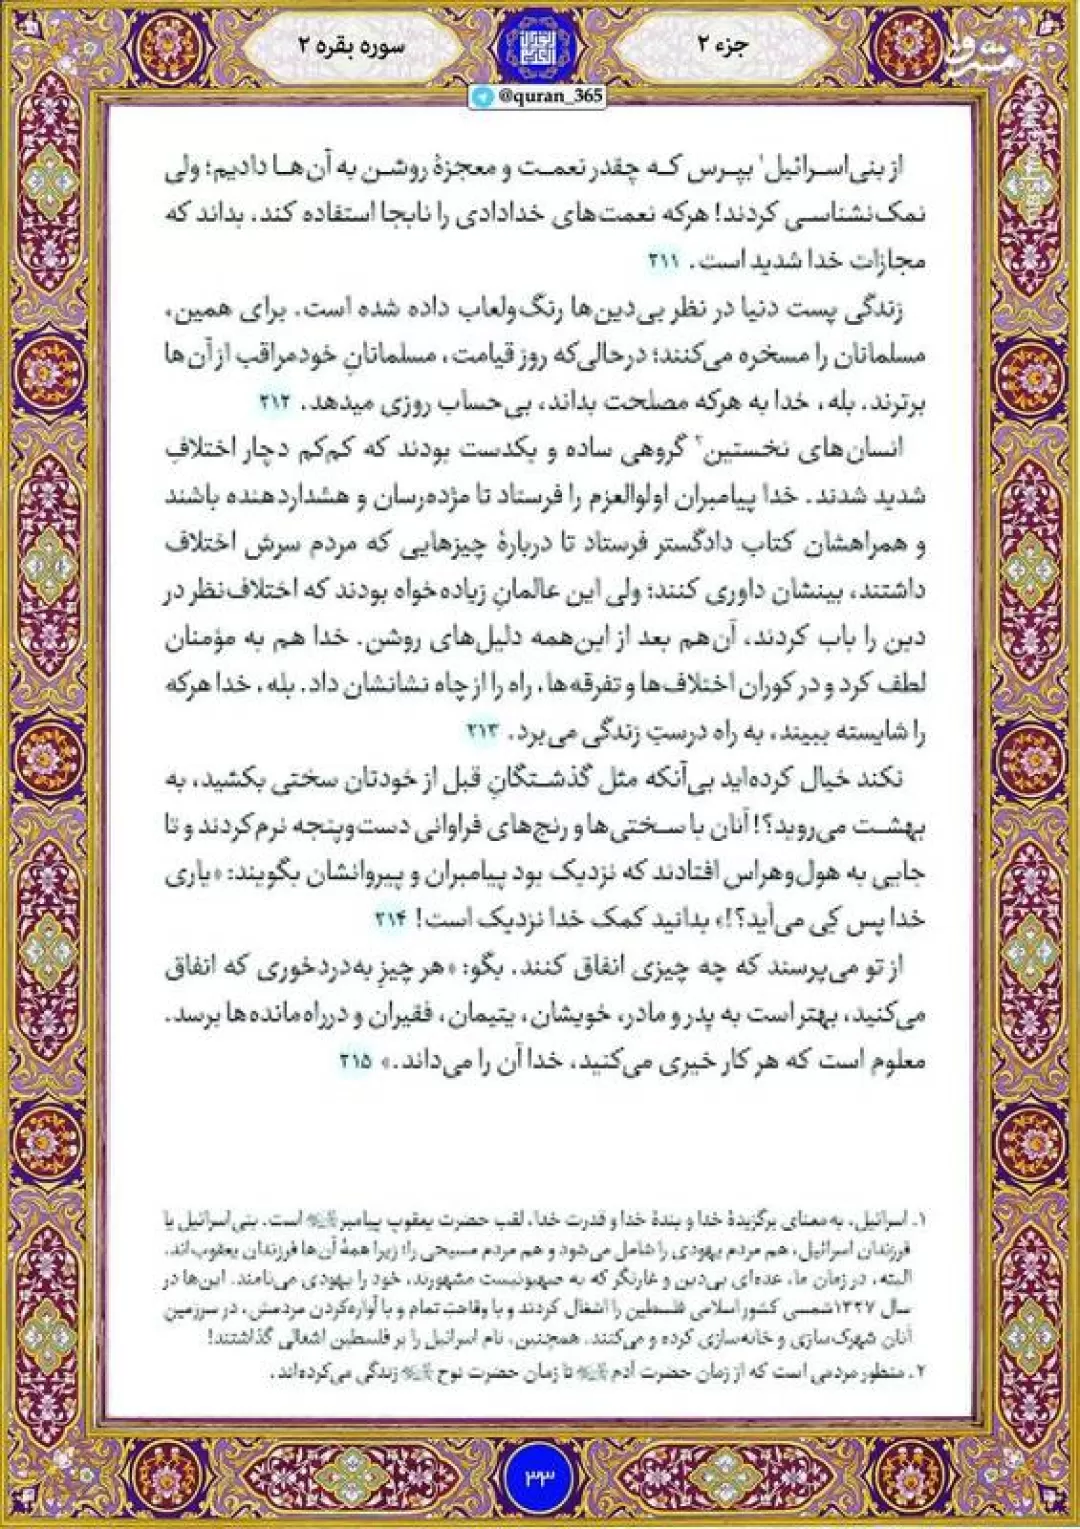 جزء ۲
سوره بقره ۲
@quran_365
مشرق
از بنی‌اسرائیل۱ بپرس که چقدر نعمت و معجزهٔ روشن به آن‌ها دادیم؛ ولی
نمک‌نشناسی کردند! هرکه نعمت‌های خدادادی را نابجا استفاده کند، بداند که
مجازات خدا شدید است. ۲۱۱
زندگی پست دنیا در نظر بی‌دین‌ها رنگ‌ولعاب داده شده است. برای همین،
مسلمانان را مسخره می‌کنند؛ درحالی‌که روز قیامت، مسلمانانِ خودمراقب از آن‌ها
برترند. بله، خدا به هرکه مصلحت بداند، بی‌حساب روزی میدهد. ۲۱۲
انسان‌های نخستین۲ گروهی ساده و یکدست بودند که کم‌کم دچار اختلافِ
شدید شدند. خدا پیامبران اولوالعزم را فرستاد تا مژده‌رسان و هشداردهنده باشند
و همراهشان کتاب دادگستر فرستاد تا دربارهٔ چیزهایی که مردم سرش اختلاف
داشتند، بینشان داوری کنند؛ ولی این عالمانِ زیاده‌خواه بودند که اختلاف‌نظر در
دین را باب کردند، آن‌هم بعد از این‌همه دلیل‌های روشن. خدا هم به مؤمنان
لطف کرد و در کوران اختلاف‌ها و تفرقه‌ها، راه را از چاه نشانشان داد. بله، خدا هرکه
را شایسته ببیند، به راه درستِ زندگی می‌برد. ۲۱۳
نکند خیال کرده‌اید بی‌آنکه مثل گذشتگانِ قبل از خودتان سختی بکشید، به
بهشت می‌روید؟! آنان با سختی‌ها و رنج‌های فراوانی دست‌وپنجه نرم کردند و تا
جایی به هول‌وهراس افتادند که نزدیک بود پیامبران و پیروانشان بگویند: «یاری
خدا پس کِی می‌آید؟!» بدانید کمک خدا نزدیک است! ۲۱۴
از تو می‌پرسند که چه چیزی انفاق کنند. بگو: «هر چیزِ به‌دردخوری که انفاق
می‌کنید، بهتر است به پدر و مادر، خویشان، یتیمان، فقیران و درراه‌مانده‌ها برسد.
معلوم است که هر کار خیری می‌کنید، خدا آن را می‌داند.» ۲۱۵
۱. اسرائیل، به معنای برگزیدهٔ خدا و بندهٔ خدا و قدرت خدا، لقب حضرت یعقوبِ پیامبر است. بنی‌اسرائیل یا
فرزندان اسرائیل، هم مردم یهودی را شامل می‌شود و هم مردم مسیحی را؛ زیرا همهٔ آن‌ها فرزندان یعقوب‌اند.
البته، در زمان ما، عده‌ای بی‌دین و غارتگر که به صهیونیست مشهورند، خود را یهودی می‌نامند. این‌ها در
سال ۱۳۲۷شمسی کشور اسلامی فلسطین را اشغال کردند و با وقاحتِ تمام و با آواره‌کردن مردمش، در سرزمین
آنان شهرک‌سازی و خانه‌سازی کرده و می‌کنند. همچنین، نام اسرائیل را بر فلسطین اشغالی گذاشتند!
۲. منظور مردمی است که از زمان حضرت آدم تا زمان حضرت نوح زندگی می‌کرده‌اند.
۳۳